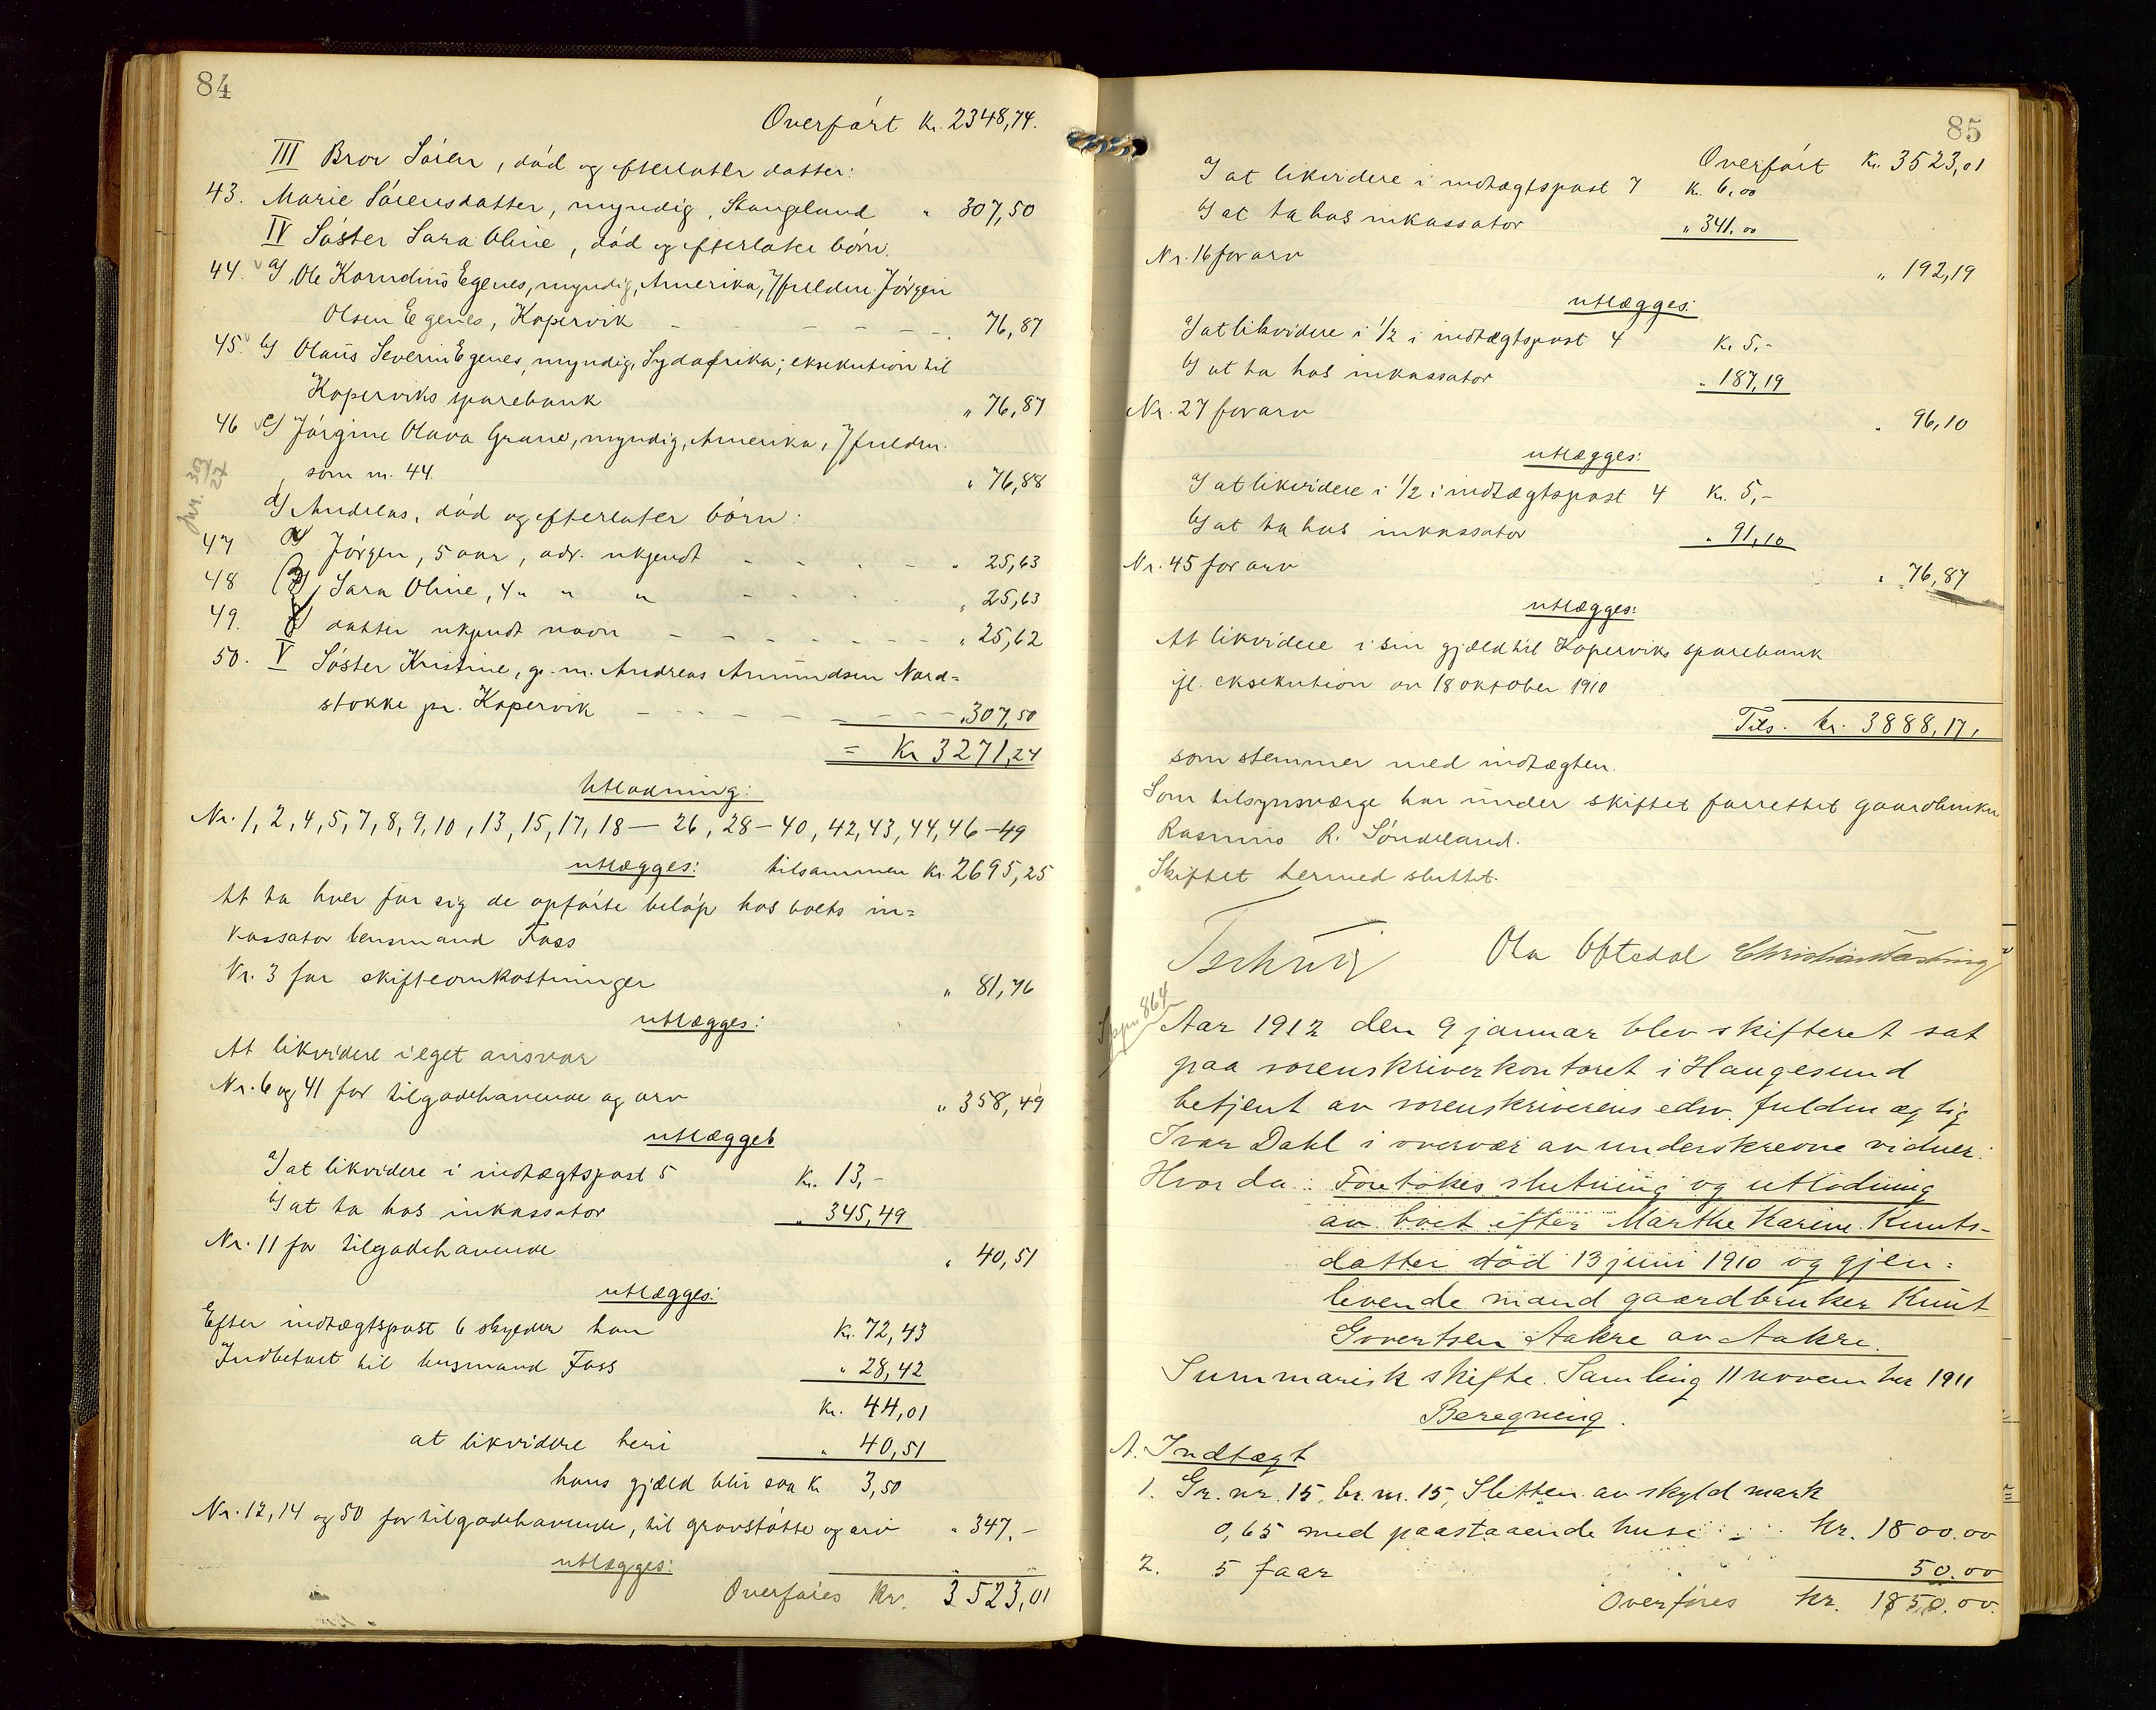 84
Overført Kr. 2348,74.
III Bror Sören, død og efterlater datter:
43. Marie Sörensdatter, myndig, Stangeland " 307,50
IV Søster Sara Oline, død og efterlater børn.
44. a) Ole Kornelius Egenes, myndig, Amerika, v/fuldm. Jörgen
Olsen Egenes, Kopervik - - - - - - . 76,87
45. b) Olaus Severin Egenes, myndig, Sydafrika; eksekution til
Koperviks sparebank " 76,87
46 c) Jörgine Olava Grane, myndig, Amerika, v/fuldm.
som nr. 44. " 76,88
Jnr. 303/27
d) Andreas, død og efterlater børn:
47 α) Jörgen, 5 aar, adr. ukjendt - - - - " 25,63
48 β) Sara Oline, 4 " " " - - - " 25,63
49. γ) datter ukjendt navn - - - - - - - " 25,62
50. V Søster Kristine, g. m. Andreas Amundsen Nord=
stokke pr. Kopervik - - - - - - - - " 307,50
= Kr 3271,24
Utlodning:
Nr. 1, 2, 4, 5, 7, 8, 9, 10, 13, 15, 17, 18 — 26, 28 — 40, 42, 43, 44, 46 — 49
utlægges: tilsammen Kr. 2695,25
At ta hver for sig de opførte beløp hos boets in=
kassator lensmand Foss
Nr. 3 for skifteomkostninger " 81,76
utlægges:
At likvidere i eget ansvar
Nr. 6 og 41 for tilgodehavende og arv " 358,49
utlægges
a) at likvidere i indtægtspost 5 Kr. 13,-
b) at ta hos inkassator " 345,49
Nr. 11 for tilgodehavende " 40,51
utlægges:
Efter indtægtspost 6 skylder han Kr. 72,43
Indbetalt til lensmand Foss " 28,42
Kr. 44,01
at likvidere heri " 40,51
hans gjæld blir saa Kr 3,50
Nr. 12, 14 og 50 for tilgodehavende, til gravstøtte og arv " 347.-
utlægges:
Overføres Kr. 3523,01
85
Overført Kr. 3523,01
a) at likvidere i indtægtspost 7 Kr. 6,00
b) at ta hos inkassator " 341.00
Nr. 16 for arv " 192,19
utlægges:
a) at likvidere i 1/2 i indtægtspost 4 Kr. 5,-
b) at ta hos inkassator " 187,19
Nr. 27 for arv " 96,10
utlægges:
a) at likvidere i 1/2 i indtægtspost 4 Kr. 5,-
b) at ta hos inkassator " 91,10
Nr. 45 for arv " 76,87
utlægges:
At likvidere i sin gjæld til Koperviks sparebank
ifl. eksekution av 18 oktober 1910
Tils. kr. 3888,17.
som stemmer med indtægten.
Som tilsynsværge har under skiftet forrettet gaardbruker
Rasmus R. Söndeland.
Skiftet dermed sluttet.
Ola Oftedal
864
Aar 1912 den 9 januar blev skifteret sat
paa sorenskriverkontoret i Haugesund
betjent av sorenskriverens edsv. fuldmægtig
Ivar Dahl i overvær av underskrevne vidner:
Hvorda: Foretokes slutning og utlodning
av boet efter Marthe Karine Knuts-
datter död 13 juni 1910 og gjen=
levende mand gaardbruker Knut
Govertsen Aakre av Aakre.
Summarisk skifte. Samling 11 november 1911
Beregning.
A. Indtægt
1. Gr. nr. 15, br. nr. 15, Sletten av skyld mark
0,65 med paastaaende huse Kr. 1800.00
2. 5 faar 50.00
Overføres Kr. 1850.00.